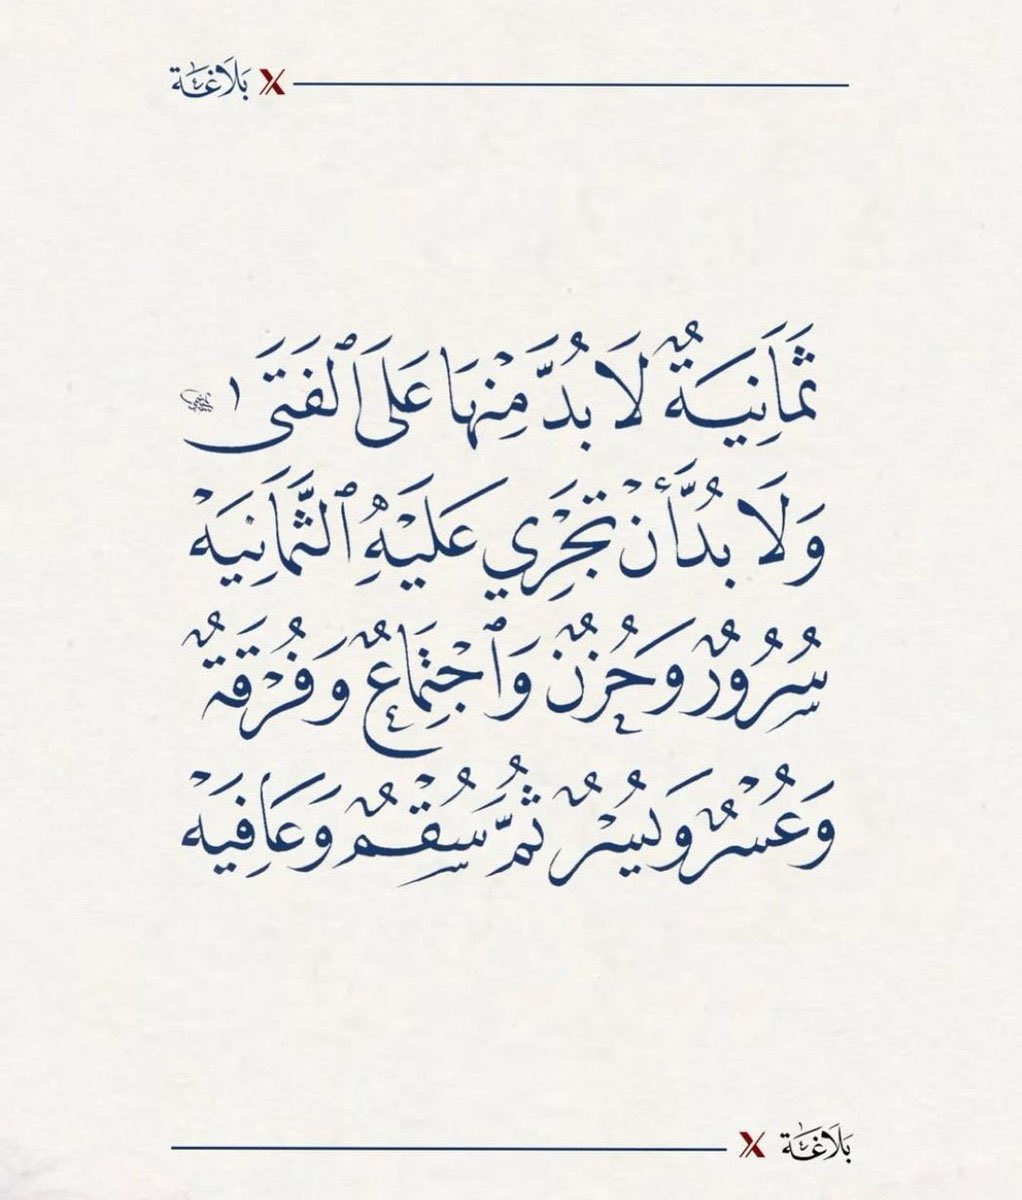 بَلَاغَة X
ثَمَانِيَةٌ لَا بُدَّ مِنْهَا عَلَى ٱلْفَتَى
وَلَا بُدَّ أَنْ تَجْرِي عَلَيْهِ ٱلثَّمَانِيَهْ
سُرُورٌ وَحُزْنٌ وَٱجْتِمَاعٌ وَفُرْقَةٌ
وَعُسْرٌ وَيُسْرٌ ثُمَّ سُقْمٌ وَعَافِيَهْ
X بَلَاغَة